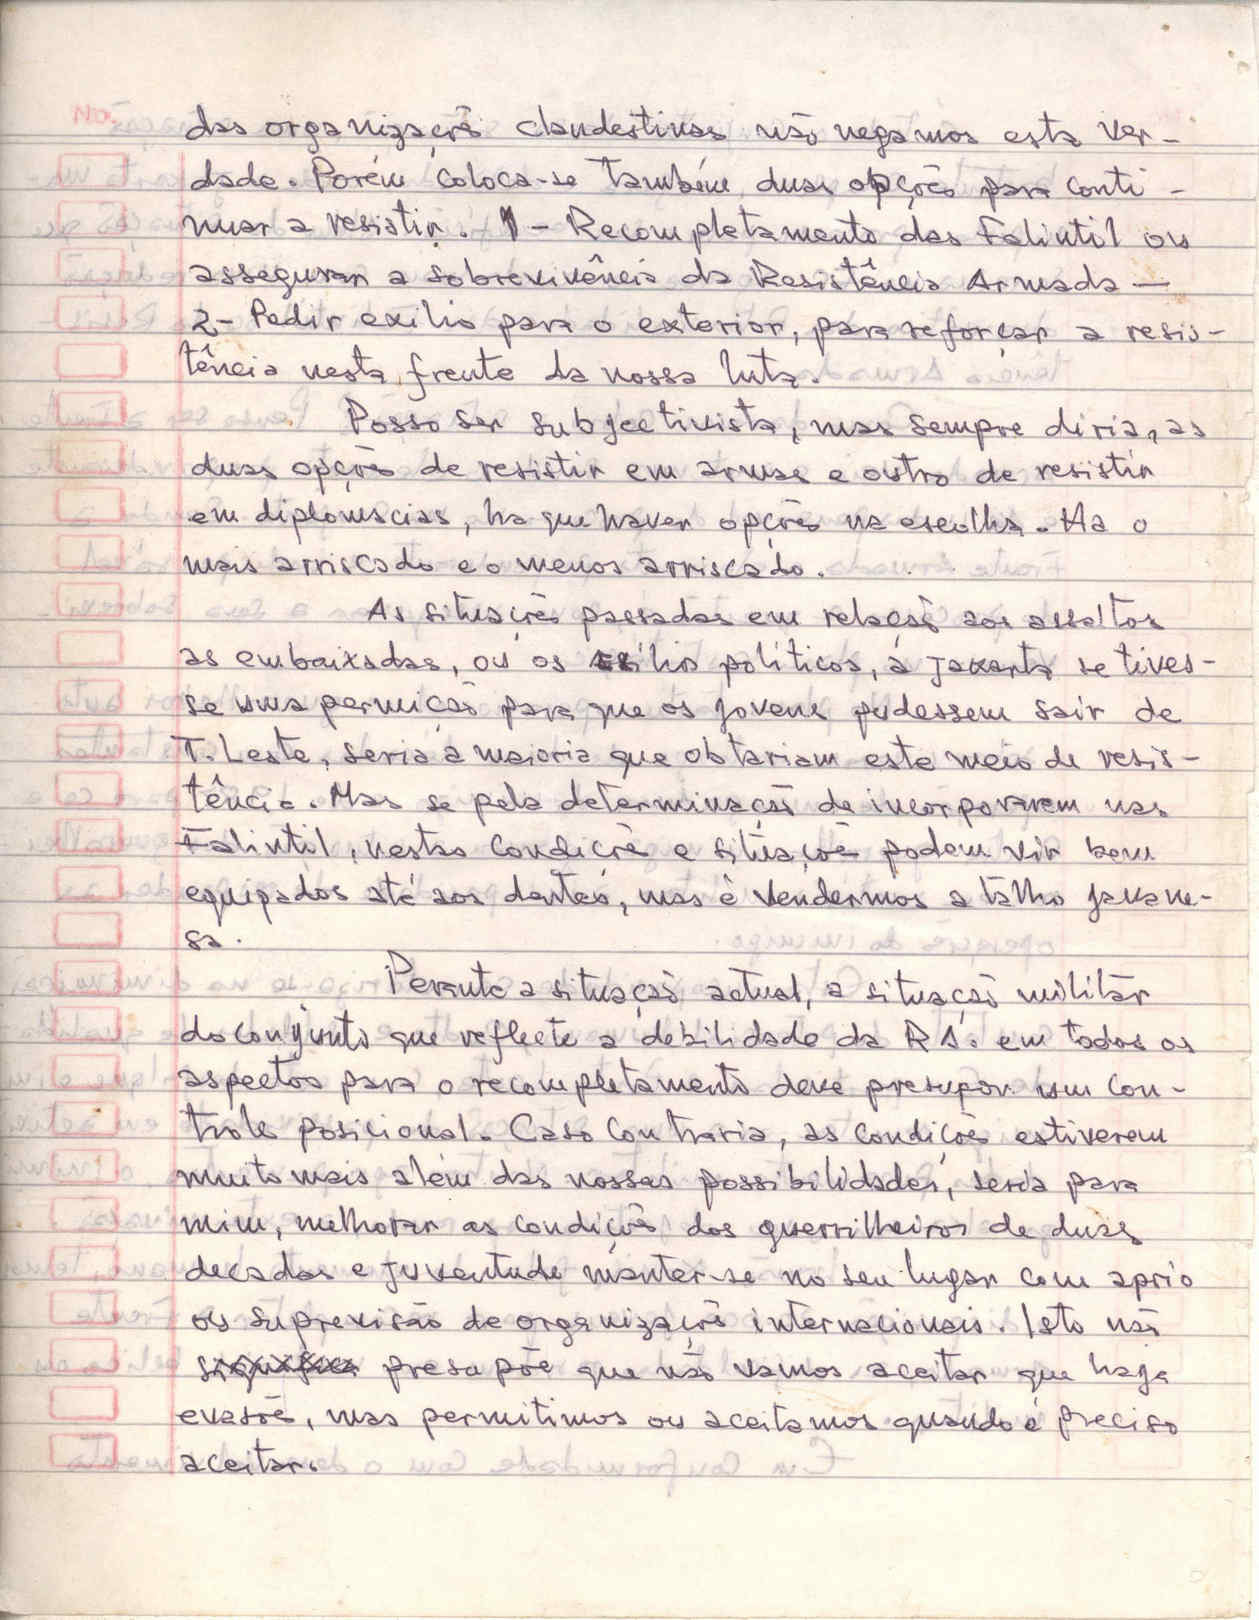 das organizaçõs clandestinas não negamos esta ver-
dade. Porém coloca-se também duas opções para conti-
nuar a resistir. 1 - Recompletamento das Falintil ou
assegurar a sobrevivência da Resistência Armada —
2- Pedir exílio para o exterior, para reforçar a resis-
tência nesta frente da nossa luta.
Posso ser subjectivista, mas sempre diria, as
duas opçõs de resistir em armas e outro de resistir
em diplomacias, ha que haver opções na escolha. Ha o
mais arriscado e o menos arriscado.
As situações passadas em relação aos assaltos
as embaixadas, ou os exílio políticos, a Jakarta se tives-
se uma permição para que os jovens pudessem sair de
T. Leste, seria a maioria que obtariam este meio de resis-
tência. Mas se pela determinação de incorporarem nas
Falintil, nestas condiçõe e situaçõe podem vir bem
equipados até aos dentes, mas é vendermos a tálho javane-
sa.
Perante a situação actual, a situação militar
do conjunto que reflecte a debilidade da R A. em todos os
aspectos para o recompletamento deve presupor um con-
trole posicional. Caso contraria, as condições estiverem
muito mais além das nossas possibilidades, seria para
mim, melhorar as condiçõe dos guerrilheiros de duas
decadas e juventude manter-se no seu lugar com aprio
ou suprevisão de organizaçõe internacionais. Isto não
presupõe que não vamos aceitar que haja
evasõe, mas permitimos ou aceitamos quando é preciso
aceitar.